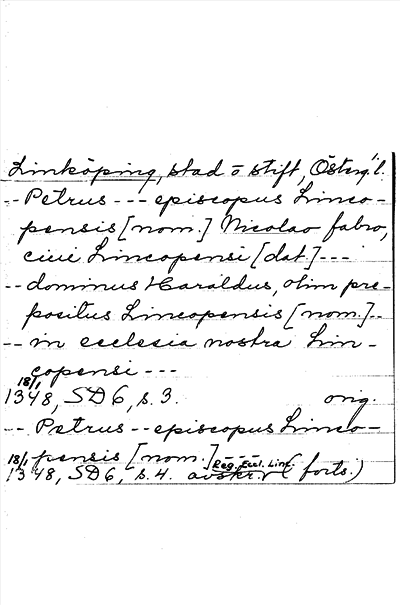 Linköping, stad o stift, Österg:l.
-- Petrus --- episcopus Linco-
pensis [nom.] Nicolao fabro,
ciui Lincopensi [dat.] ---
-- dominus Haraldus, olim pre-
positus Lincopensis [nom.] --
-- in ecclesia nostra Lin-
copensi ---
18/1
1348, SD 6, s. 3. orig.
-- Petrus -- episcopus Linco-
pensis [nom.] ----
18/1 Reg. Eccl. Linc.
1348, SD 6, s. 4. avskr. (forts.)